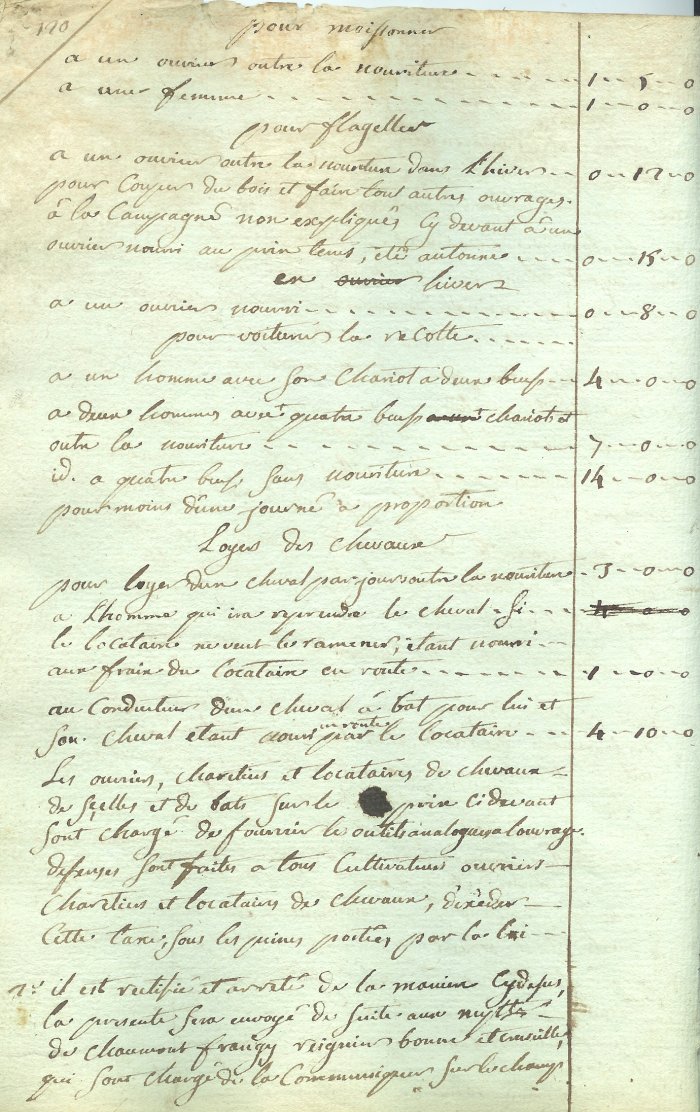 170
pour moissonner
a un ouvrier outre la nouriture - - - - 1 - 5 - 0
a une femme - - - - 1 - 0 - 0
pour flageller
a un ouvrier outre la nouriture dans l'hiver - - 0 - 12 - 0
pour Couper du bois et faire tout autres ouvrages.
à la Campagne non expliqués Cy devant à un
ouvrier nourri au printems, été autonne - - - 0 - 15 - 0
en ouvrier hiver
a un ouvrier nourri - - - - 0 - 8 - 0
pour voiturer la recolte - - - -
a un homme avec son Chariot a deux beufs - - 4 - 0 - 0
a deux hommes avec quatre beufs chariot et
outre la nouriture - - - - 7 - 0 - 0
id. a quatre beufs sans nouriture - - - - 14 - 0 - 0
pour moins d'une journé à proportion
Loyers des chevaux
pour loyer d'un cheval par jour outre la nouriture - 3 - 0 - 0
a L'homme qui ira reprendre le cheval - Si - 4 - 0 - 0
le locataire ne veut le ramener, étant nourri -
aux frais du locataire en route - - - - 1 - 0 - 0
au Conducteur d'un cheval à bat pour lui et
son cheval etant nouri en route par le locataire - - - 4 - 10 - 0
Les ouvriers, charetiers et locataires de chevaux -
de selles et de bats sur le prix ci devant
sont chargé de fournir le outils analogues a louvrage.
defenses sont faites a tous Cultivateurs ouvriers -
Charetiers et locataires de chevaux, d'exéder -
Cette taxe, sous les peines portées par la loi -
il est rectifié et arreté de la maniere Cydessus,
la presente sera envoyé de suite aux
de chaumont frangy reignier bonne et
qui sont chargé de la Communiquer sur le champ